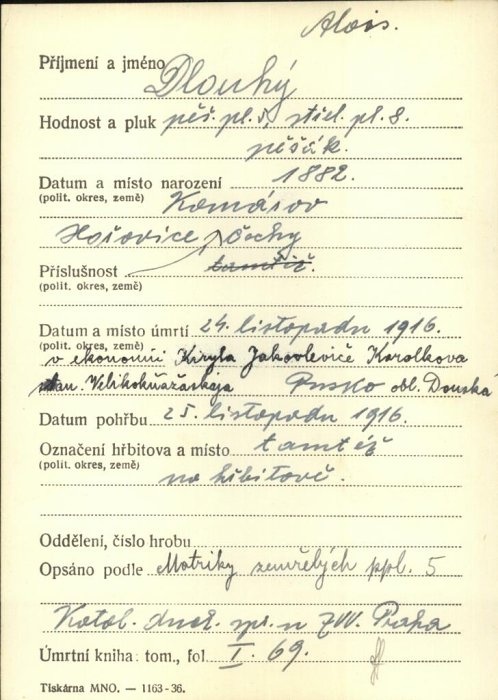 Alois.
Příjmení a jméno Dlouhý
Hodnost a pluk pěš. pl. 5, střel. pl. 8.
pěšák.
Datum a místo narození 1882.
(polit. okres, země) Komárov
Hořovice, Čechy
Příslušnost tamtéž.
(polit. okres, země)
Datum a místo úmrtí 24. listopadu 1916.
(polit. okres, země)
v ekonomii Kiryla Jakovleviče Korolkova
stan. Velikokňažaskaja Rusko obl. Donská
Datum pohřbu 25. listopadu 1916.
Označení hřbitova a místo tamtéž
(polit. okres, země)
na hřbitově.
Oddělení, číslo hrobu
Opsáno podle Matriky zemřelých ppl. 5
Katol. duch. spr. u ZVV. Praha
Úmrtní kniha: tom., fol. I. 69.
Tiskárna MNO. — 1163-36.